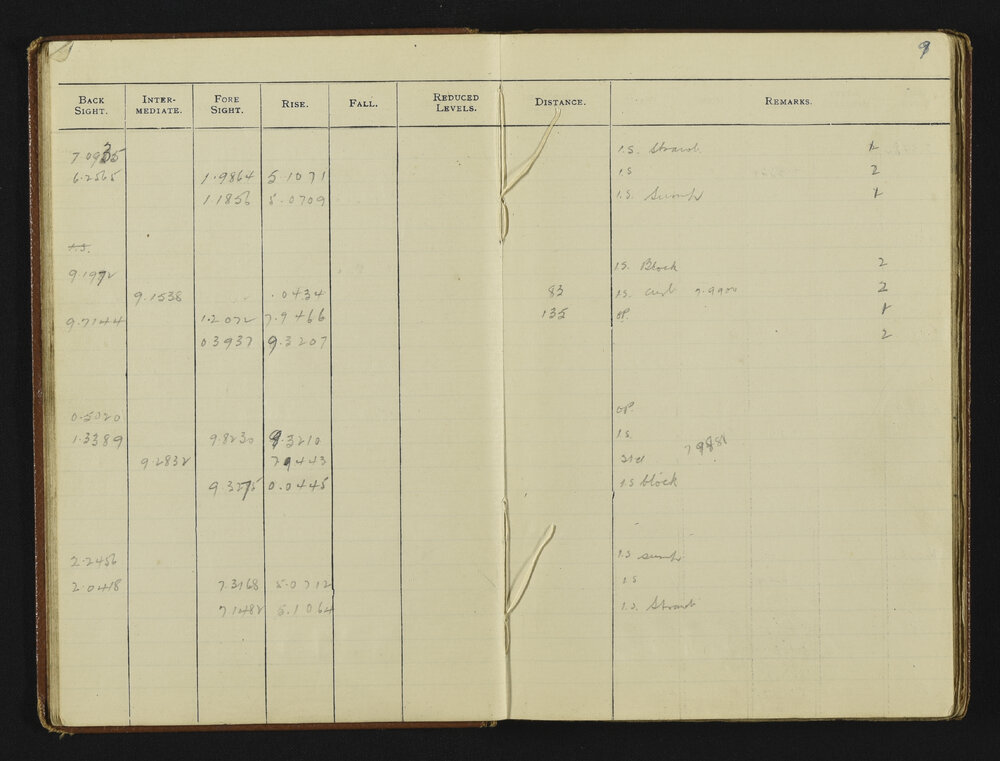 9
BACK SIGHT. INTER-MEDIATE. FORE SIGHT. RISE. FALL. REDUCED LEVELS. DISTANCE. REMARKS.
7.0935 1.S. Strand 1
6.2565 1.9864 5.1071 1S 2
1.1856 5.0709 1.S. Sump 1
1.S.
9.1972 1S. Block 2
9.1538 .0434 83 1S. 9.9900 2
9.7144 1.2072 7.9466 135 OP. 1
03937 9.3207 2
0.5020 OP.
1.3389 9.8230 9.3210 1S.
9.2832 7.9443 79881
9.3275 0.0445 1.S block
2.2456 1.S sump
2.0418 7.3168 5.0712 1S
7.1482 5.1064 1.S. Strand